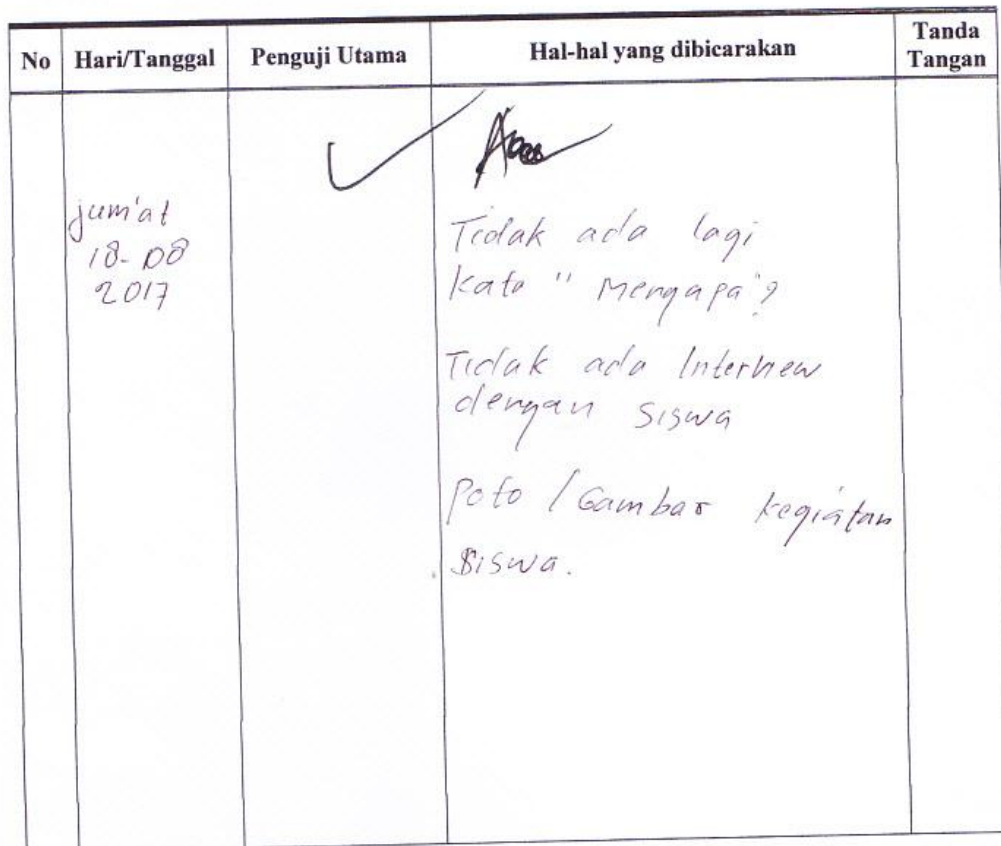 No Hari/Tanggal Penguji Utama Hal-hal yang dibicarakan Tanda Tangan
jum'at
18-08
2017
Tidak ada lagi
kata "Mengapa"?
Tidak ada Interview
dengan siswa
Poto / Gambar kegiatan
Siswa.